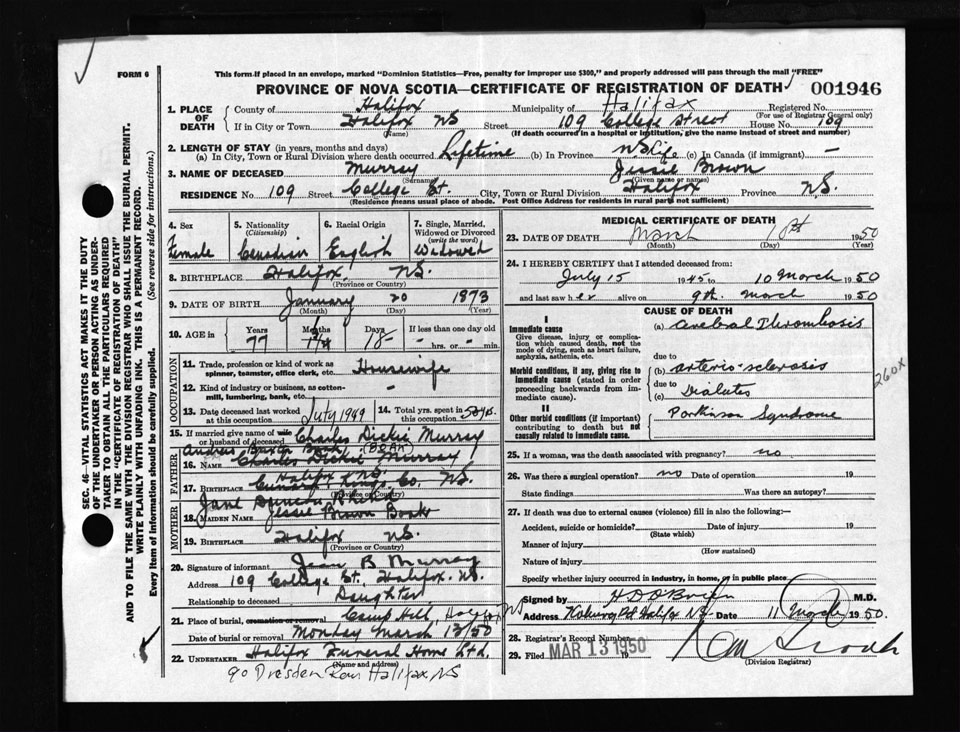 FORM 6
This form if placed in an envelope, marked "Dominion Statistics—Free, penalty for improper use $300," and properly addressed will pass through the mail "FREE"
PROVINCE OF NOVA SCOTIA—CERTIFICATE OF REGISTRATION OF DEATH
001946
SEC. 46—VITAL STATISTICS ACT MAKES IT THE DUTY
OF THE UNDERTAKER OR PERSON ACTING AS UNDER-
TAKER TO OBTAIN ALL THE PARTICULARS REQUIRED
IN THE "CERTIFICATE OF REGISTRATION OF DEATH"
AND TO FILE THE SAME WITH THE DIVISION REGISTRAR WHO SHALL ISSUE THE BURIAL PERMIT.
WRITE PLAINLY WITH UNFADING INK. THIS IS A PERMANENT RECORD.
Every item of information should be carefully supplied. (See reverse side for instructions.)
1. PLACE OF DEATH
County of Halifax Municipality of Halifax Registered No.
(For use of Registrar General only)
If in City or Town Halifax NS Street 109 College Street House No. 109
(Name) (If death occurred in a hospital or institution, give the name instead of street and number)
2. LENGTH OF STAY (in years, months and days)
(a) In City, Town or Rural Division where death occurred Lifetime (b) In Province N.S. Life (c) In Canada (if immigrant) —
3. NAME OF DECEASED Murray Jessie Brown
(Surname) (Given name or names)
RESIDENCE No. 109 Street College St. City, Town or Rural Division Halifax Province N.S.
(Residence means usual place of abode. Post Office Address for residents in rural parts not sufficient)
4. Sex Female
5. Nationality (Citizenship) Canadian
6. Racial Origin English
7. Single, Married, Widowed or Divorced (write the word) Widowed
8. BIRTHPLACE Halifax, NS.
(Province or Country)
9. DATE OF BIRTH January 20 1873
(Month) (Day) (Year)
10. AGE in Years 77 Months Days 18 If less than one day old - hrs. or - min.
OCCUPATION
11. Trade, profession or kind of work as spinner, teamster, office clerk, etc. Housewife
12. Kind of industry or business, as cotton-mill, lumbering, bank, etc. -
13. Date deceased last worked at this occupation July 1949
14. Total yrs. spent in this occupation 50 yrs.
15. If married give name of wife or husband of deceased Charles Dickie Murray
FATHER
Andrew Baxter Boak (BOAK)
16. NAME Charles Dickie Murray
Halifax NS.
17. BIRTHPLACE Kings Co. NS.
(Province or Country)
MOTHER
Jane Duncan
18. MAIDEN NAME Jessie Brown Boak
19. BIRTHPLACE Halifax NS.
(Province or Country)
20. Signature of informant Jean B Murray
Address 109 College St., Halifax. NS.
Relationship to deceased Daughter
21. Place of burial, cremation or removal Camp Hill, Halifax NS
Date of burial or removal Monday March 13/50
22. UNDERTAKER Halifax Funeral Home Ltd.
(Name and address)
90 Dresden Row Halifax NS
MEDICAL CERTIFICATE OF DEATH
23. DATE OF DEATH March 10th 1950
(Month) (Day) (Year)
24. I HEREBY CERTIFY that I attended deceased from:
July 15 1945 to 10 March 1950
and last saw her alive on 9th March 1950
CAUSE OF DEATH
I
Immediate cause
Give disease, injury or complication which caused death, not the mode of dying, such as heart failure, asphyxia, asthenia, etc.
(a) Cerebral Thrombosis
due to
Morbid conditions, if any, giving rise to immediate cause (stated in order proceeding backwards from immediate cause).
(b) arterio-sclerosis
due to
(c) Diabetes
II
Other morbid conditions (if important) contributing to death but not causally related to immediate cause.
Parkinson Syndrome
260X
25. If a woman, was the death associated with pregnancy? no
26. Was there a surgical operation? no Date of operation 19
State findings Was there an autopsy?
27. If death was due to external causes (violence) fill in also the following:—
Accident, suicide or homicide? Date of injury 19
(State which)
Manner of injury
(How sustained)
Nature of injury
Specify whether injury occurred in industry, in home, or in public place
Signed by H D O'Brien M.D.
Address Coburg Rd Halifax NS Date 11 March 1950.
28. Registrar's Record Number
29. Filed MAR 13 1950 19
(Division Registrar)